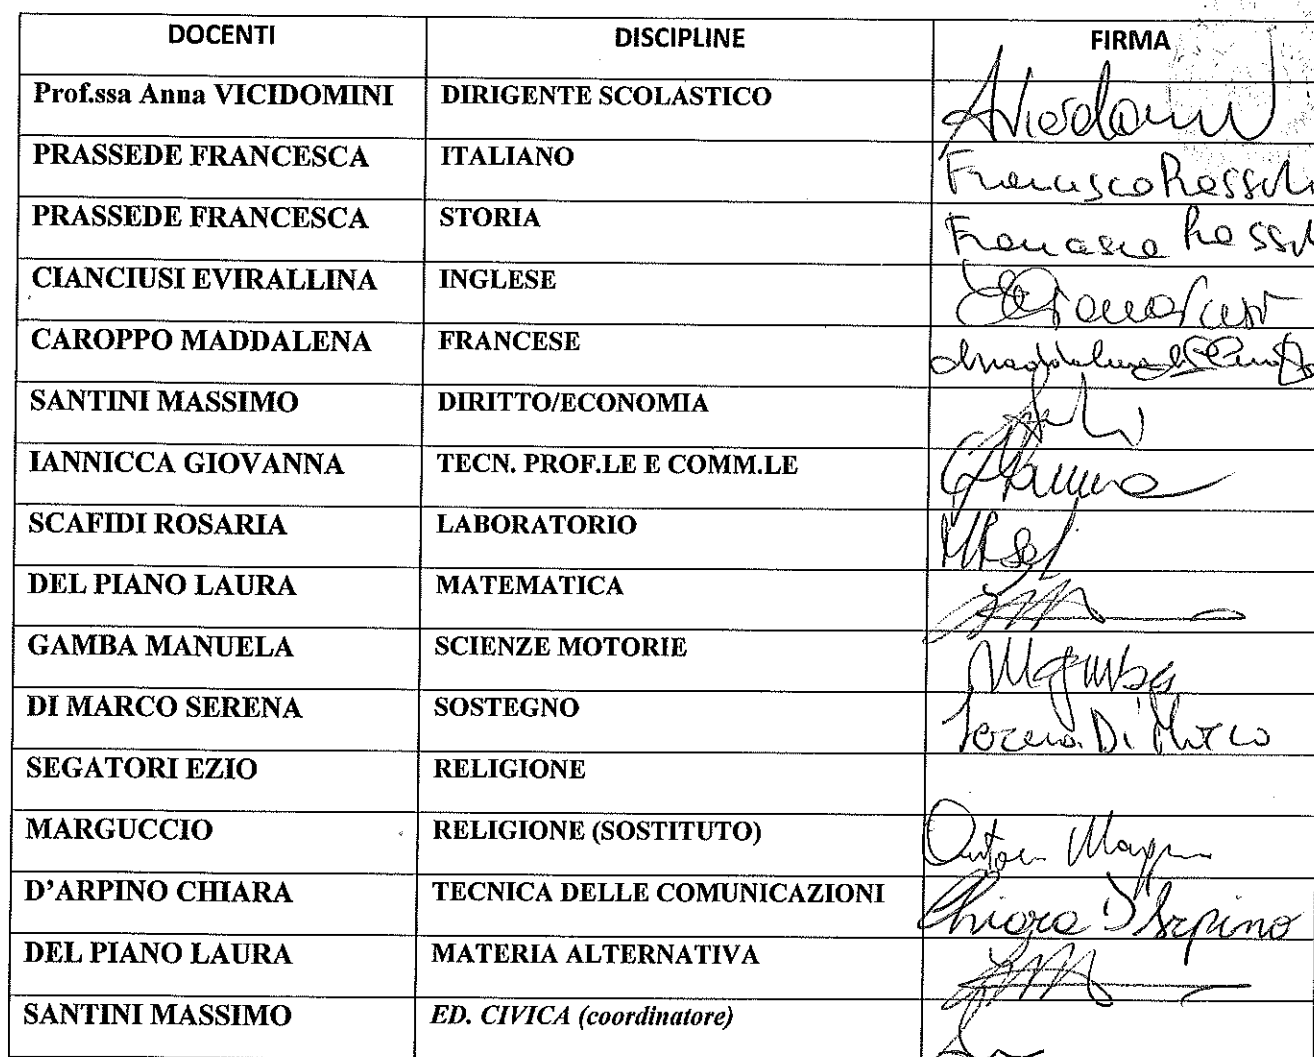 DOCENTI DISCIPLINE FIRMA
Prof.ssa Anna VICIDOMINI DIRIGENTE SCOLASTICO
PRASSEDE FRANCESCA ITALIANO Francesca
PRASSEDE FRANCESCA STORIA Francesca
CIANCIUSI EVIRALLINA INGLESE
CAROPPO MADDALENA FRANCESE
SANTINI MASSIMO DIRITTO/ECONOMIA
IANNICCA GIOVANNA TECN. PROF.LE E COMM.LE
SCAFIDI ROSARIA LABORATORIO
DEL PIANO LAURA MATEMATICA
GAMBA MANUELA SCIENZE MOTORIE MGamba
DI MARCO SERENA SOSTEGNO Serena Di Marco
SEGATORI EZIO RELIGIONE
MARGUCCIO RELIGIONE (SOSTITUTO)
D'ARPINO CHIARA TECNICA DELLE COMUNICAZIONI Chiara D'Arpino
DEL PIANO LAURA MATERIA ALTERNATIVA
SANTINI MASSIMO ED. CIVICA (coordinatore)